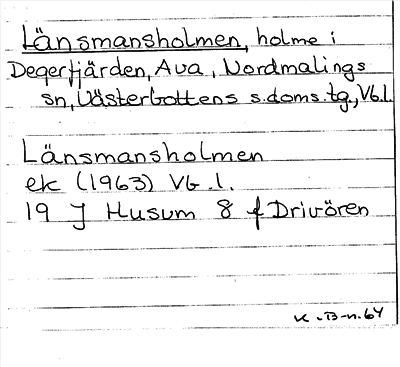 Länsmansholmen, holme i
Degerfjärden, Ava, Nordmalings
sn, Västerbottens s.doms.tg., Vb.l.
Länsmansholmen
ek (1963) Vb.l.
19 J Husum 8 f Drivören
K.B-n.64